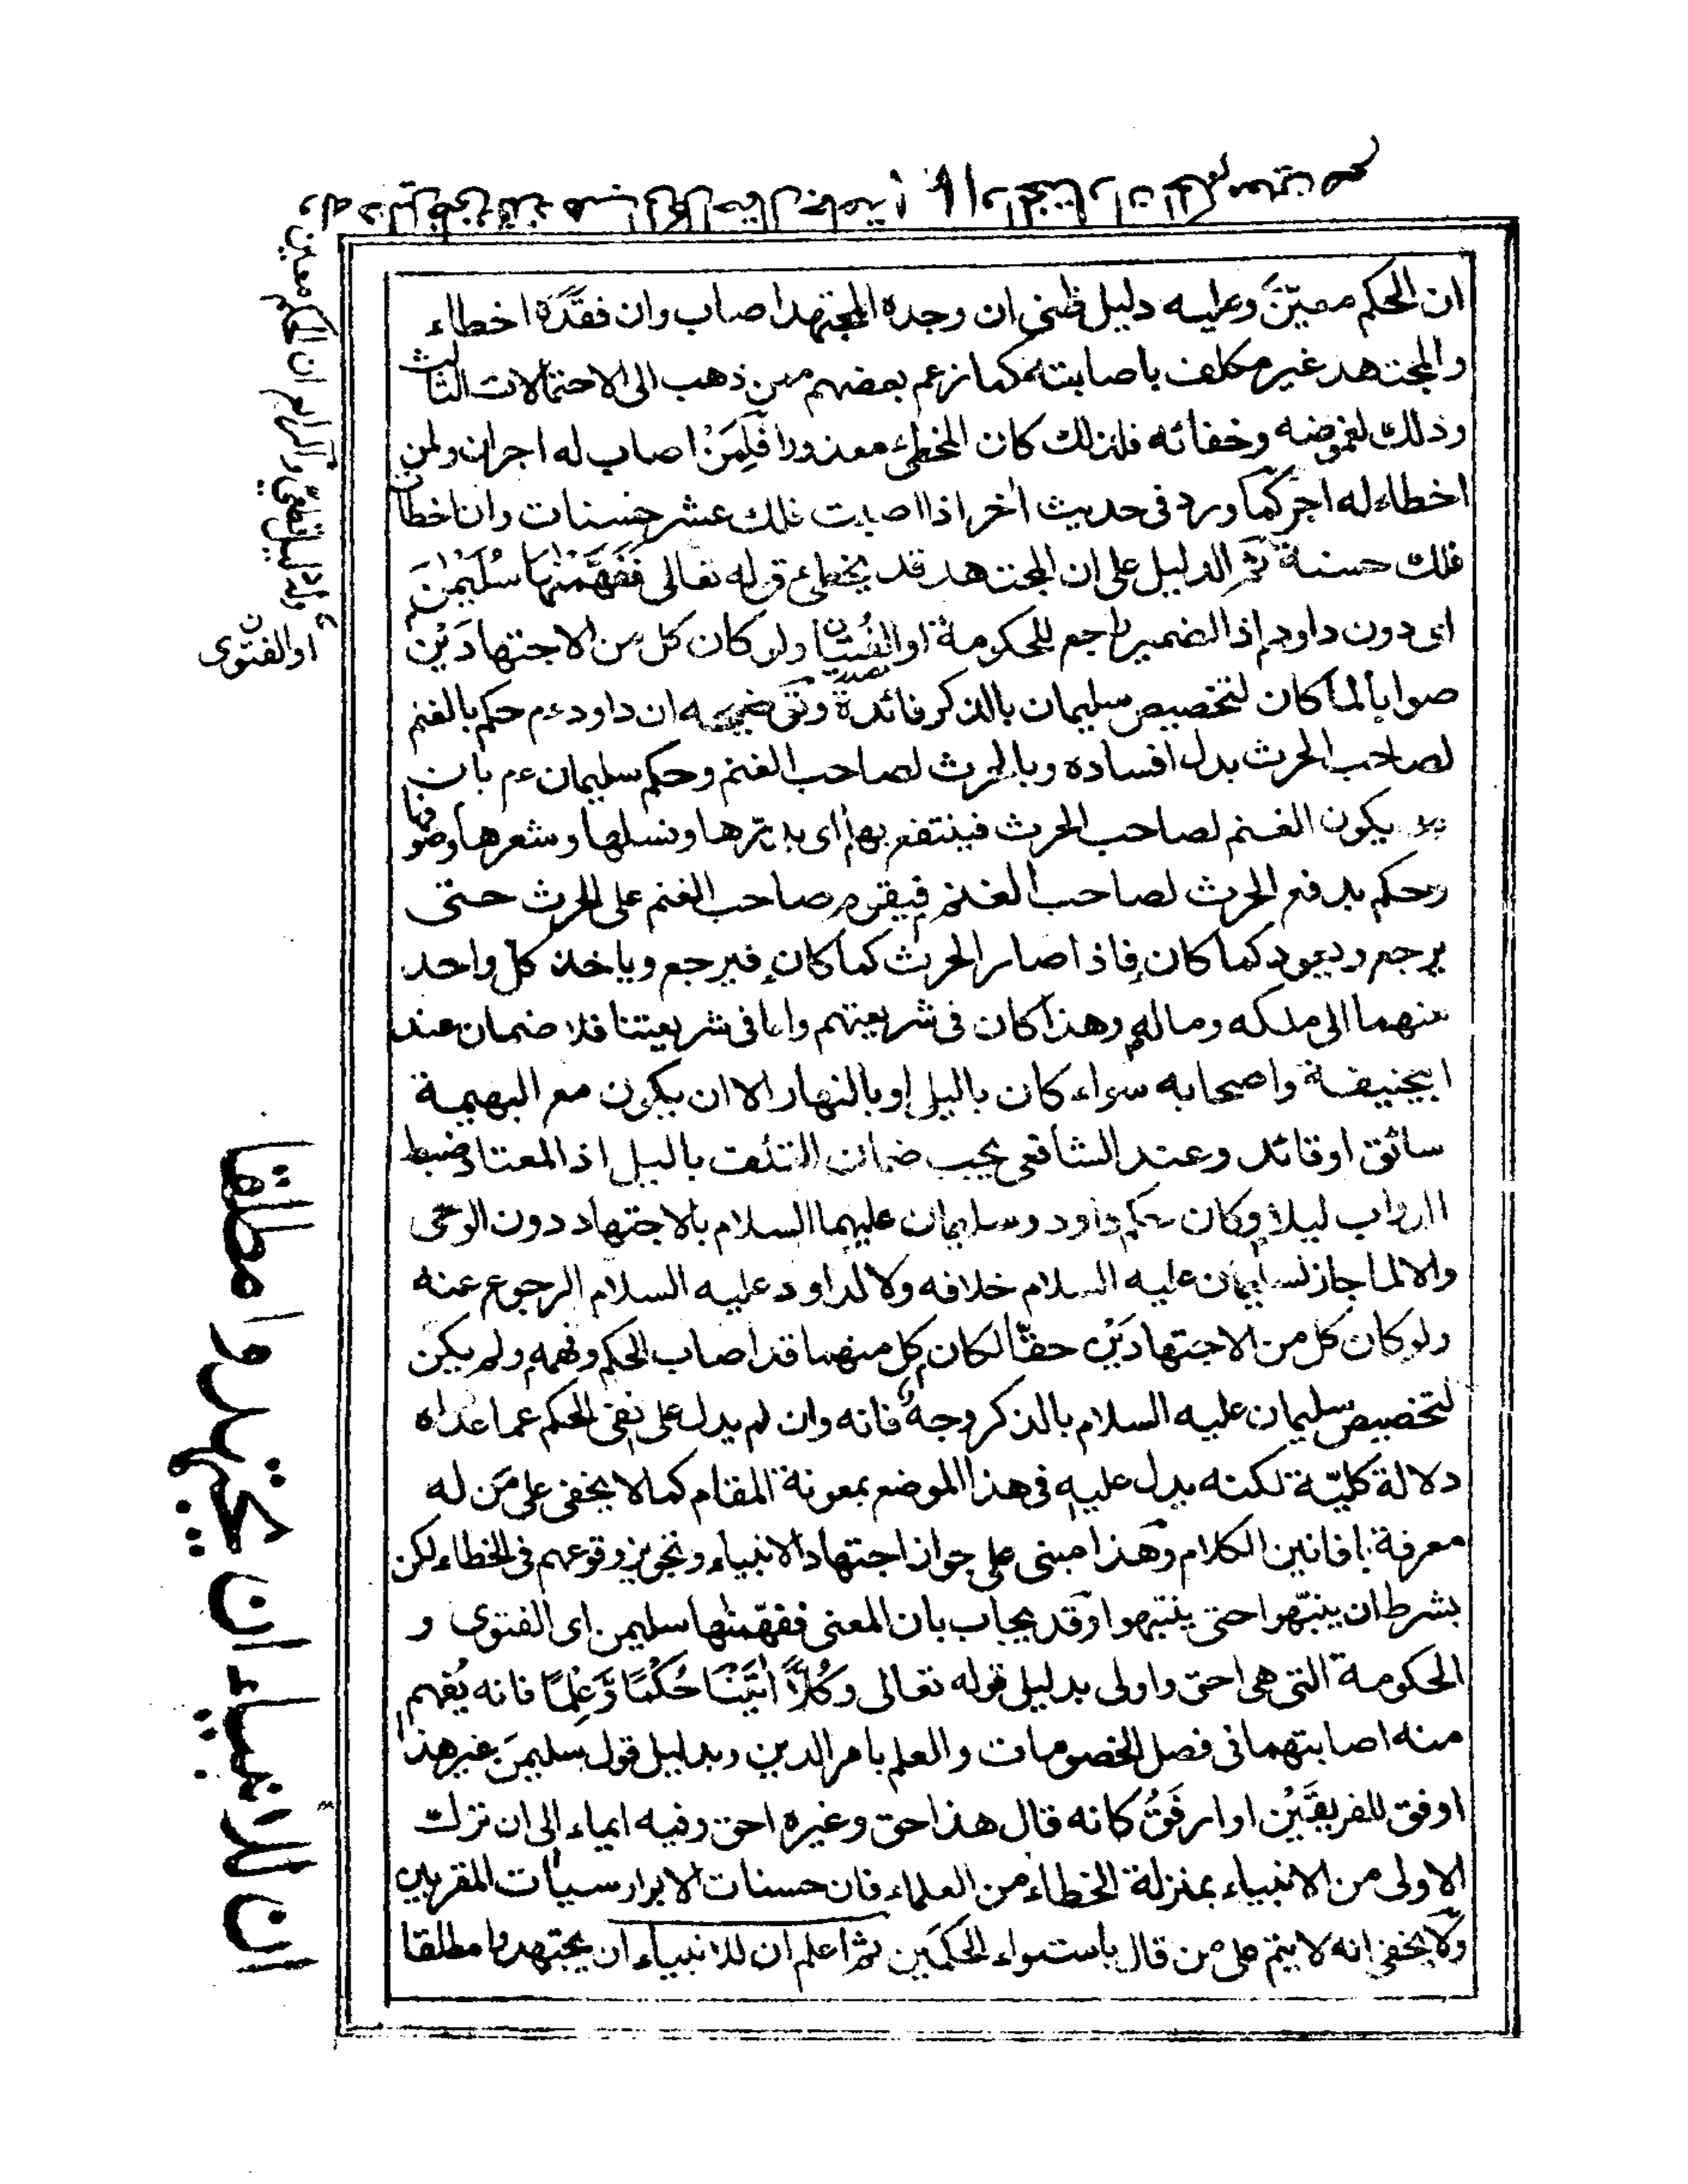 ان الحكم معيّنٌ وعليه دليل ظنى ان وجده المجتهد اصاب وان فقَدَهٗ اخطاء
والمجتهد غير مكلف باصابته كما زعم بعضهم ممن ذهب الى الاحتمالات الثالث
وذلك لغموضه وخفائه فلذلك كان المخطئ معذورا فَلِمَنْ اصاب له اجران ولمن
اخطاء له اجر كما ورد فى حديث اخر اذا اصبت فلك عشر حسنات وان اخطات
فلك حسنة ثم الدليل على ان المجتهد قد يخطى قوله تعالى فَفَهَّمْنٰهَا سُلَيْمٰنَ
اى دون داود اذ الضمير راجع للحكومة او الفُتيا ولو كان كل من الاجتهادَيْن
صوابا لما كان لتخصيص سليمان بالذكر فائدة وتوضيحه ان داود ءم حكم بالغنم
لصاحب الحرث بدل افساده وبالحرث لصاحب الغنم وحكم سليمان ءم بان
يكون الغنم لصاحب الحرث فينتفع بها اى بدرّها ونسلها وشعرها وصوفها
وحكم بدفع الحرث لصاحب الغنم فيقوم صاحب الغنم على الحرث حتى
يرجع ويعود كما كان فاذا صار الحرث كما كان فيرجع وياخذ كل واحد
منهما الى ملكه وماله وهذا كان فى شريعتهم واما فى شريعتنا فلا ضمان عند
ابيحنيفة واصحابه سواء كان باليل او بالنهار الا ان يكون مع البهيمة
سائق او قائد وعند الشافعى يجب ضمان المتلف باليل اذ المعتاد ضبط
الدواب ليلا وكان حكم داود وسليمان عليهما السلام بالاجتهاد دون الوحى
والا لما جاز لسليمان عليه السلام خلافه ولا لداود عليه السلام الرجوع عنه
ولو كان كل من الاجتهادَيْن حقّا لكان كل منهما قد اصاب الحكم وفهمه ولم يكن
لتخصيص سليمان عليه السلام بالذكر وجهٌ فانه وان لم يدل على نفى الحكم عما عداه
دلالة كليّة لكنه يدل عليه فى هذا الموضع بمعونة المقام كما لا يخفى على مَن له
معرفة بافانين الكلام وهذا مبنى على جواز اجتهاد الانبياء وتجويز وقوعهم فى الخطاء لكن
بشرط ان ينبّهوا حتى ينتبهوا وقد يجاب بان المعنى ففهّمنٰها سليمن اى الفتوى و
الحكومة التى هى احق واولى بدليل قوله تعالى وَكُلًّا اٰتَيْنَا حُكْمًا وَّعِلْمًا فانه يُفهم
منه اصابتهما فى فصل الخصومات والعلم بامر الدين وبدليل قول سليمنَ غير هذا
اوفق للفريقَيْن او ارفَقُ كانه قال هذا حق وغيره احق وفيه ايماء الى ان ترك
الاولى من الانبياء بمنزلة الخطاء من العلماء فان حسنات الابرار سيأت المقربين
ولا يخفى انه لا يتم على من قال باستواء الحكمَين ثم اعلم ان للانبياء ان يجتهدوا مطلقا
او الفتوى
ان للانبياء ان يجتهدوا مطلقا